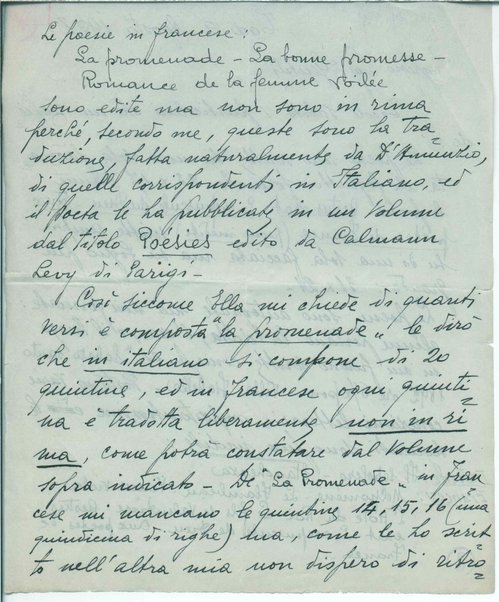 Le poesie in francese:
La promenade - La bonne promesse -
Romance de la femme voilée
sono edite ma non sono in rima
perché, secondo me, queste sono la tra=
duzione, fatta naturalmente da D'Annunzio,
di quelle corrispondenti in Italiano, ed
il Poeta le ha pubblicate in un volume
dal titolo Poésies edito da Calmann
Levy di Parigi -
Così siccome Ella mi chiede di quanti
versi è composta "la promenade" le dirò
che in italiano si compone di 20
quintine, ed in francese ogni quinti=
na è tradotta liberamente non in ri=
ma, come potrà constatare dal volume
sopra indicato - Di "La Promenade" in fran
cese mi mancano le quintine 14, 15, 16 (una
quindicina di righe) ma come le ho scrit
to nell'altra mia non dispero di ritro=